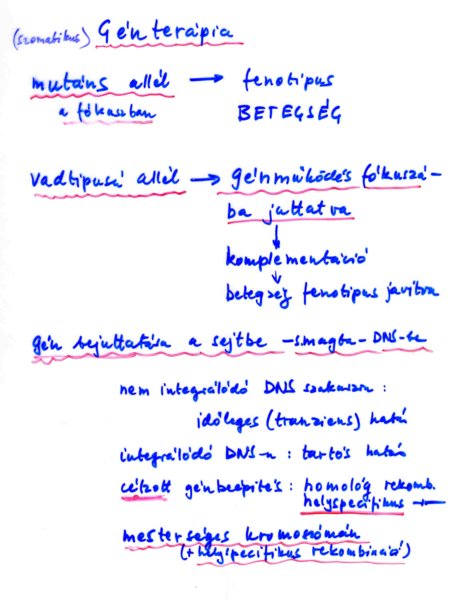 (szomatikus) Génterápia
mutáns allél → fenotipus
a fókuszban BETEGSÉG
vadtipusú allél → génműködés fókuszá-
ba juttatva
↓
komplementáció
↓
betegség fenotipus javitva
gén bejuttatása a sejtbe -s.magba-DNS-be
nem integrálódó DNS szakaszon :
időleges (tranziens) hatás
integrálódó DNS-n : tartós hatás
célzott génbeépités : homológ rekomb.
helyspecifikus —
mesterséges kromoszómán
(+helyspecifikus rekombináció)